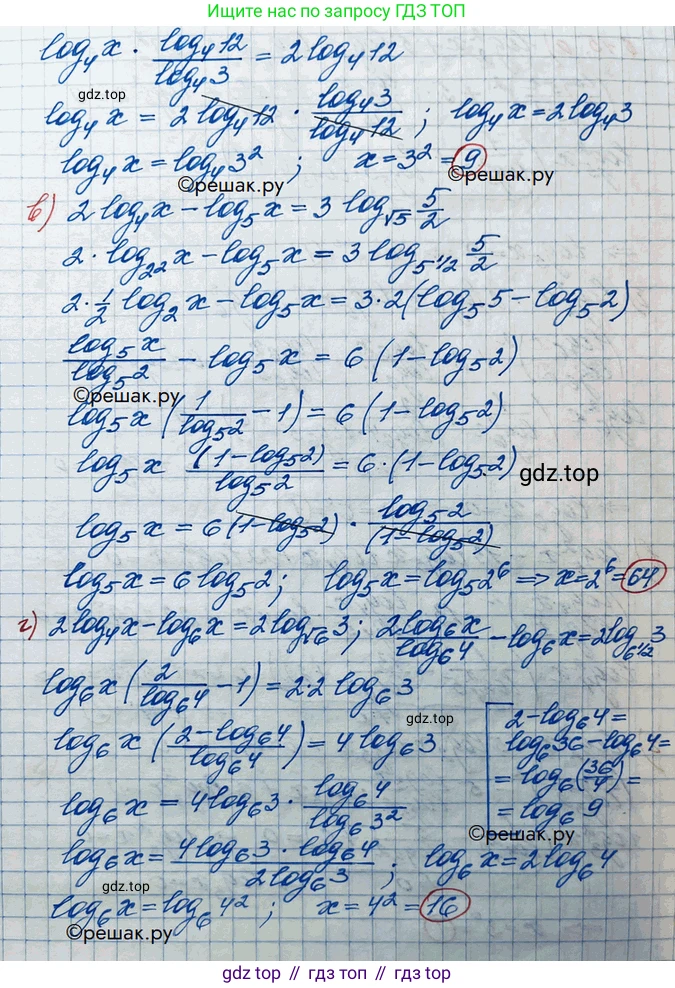 Ищите нас по запросу ГДЗ ТОП
log₄x · log₄12/log₄3 = 2log₄12
gdz.top
log₄x = 2log₄12 · log₄3/log₄12; log₄x = 2log₄3
log₄x = log₄3²; x = 3² = 9
©решак.ру
©решак.ру
в) 2log₄x - log₅x = 3log_√5 5/2
2 · log_2² x - log₅x = 3log_5^1/2 5/2
2 · 1/2 log₂x - log₅x = 3·2(log₅5 - log₅2)
log₅x/log₅2 - log₅x = 6(1 - log₅2)
©решак.ру
log₅x (1/log₅2 - 1) = 6(1 - log₅2)
log₅x (1 - log₅2)/log₅2 = 6·(1 - log₅2)
gdz.top
log₅x = 6(1 - log₅2) · log₅2/(1 - log₅2)
log₅x = 6log₅2; log₅x = log₅2⁶ => x = 2⁶ = 64
г) 2log₄x - log₆x = 2log_√6 3; 2log₆x/log₆4 - log₆x = 2log_6^1/2 3
log₆x (2/log₆4 - 1) = 2·2log₆3
gdz.top
log₆x (2 - log₆4/log₆4) = 4log₆3
2 - log₆4 =
log₆36 - log₆4 =
= log₆(36/4) =
= log₆9
log₆x = 4log₆3 · log₆4/log₆3²
©решак.ру
log₆x = 4log₆3 · log₆4/2log₆3; log₆x = 2log₆4
log₆x = log₆4²; x = 4² = 16
©решак.ру
gdz top // гдз топ // гдз.top